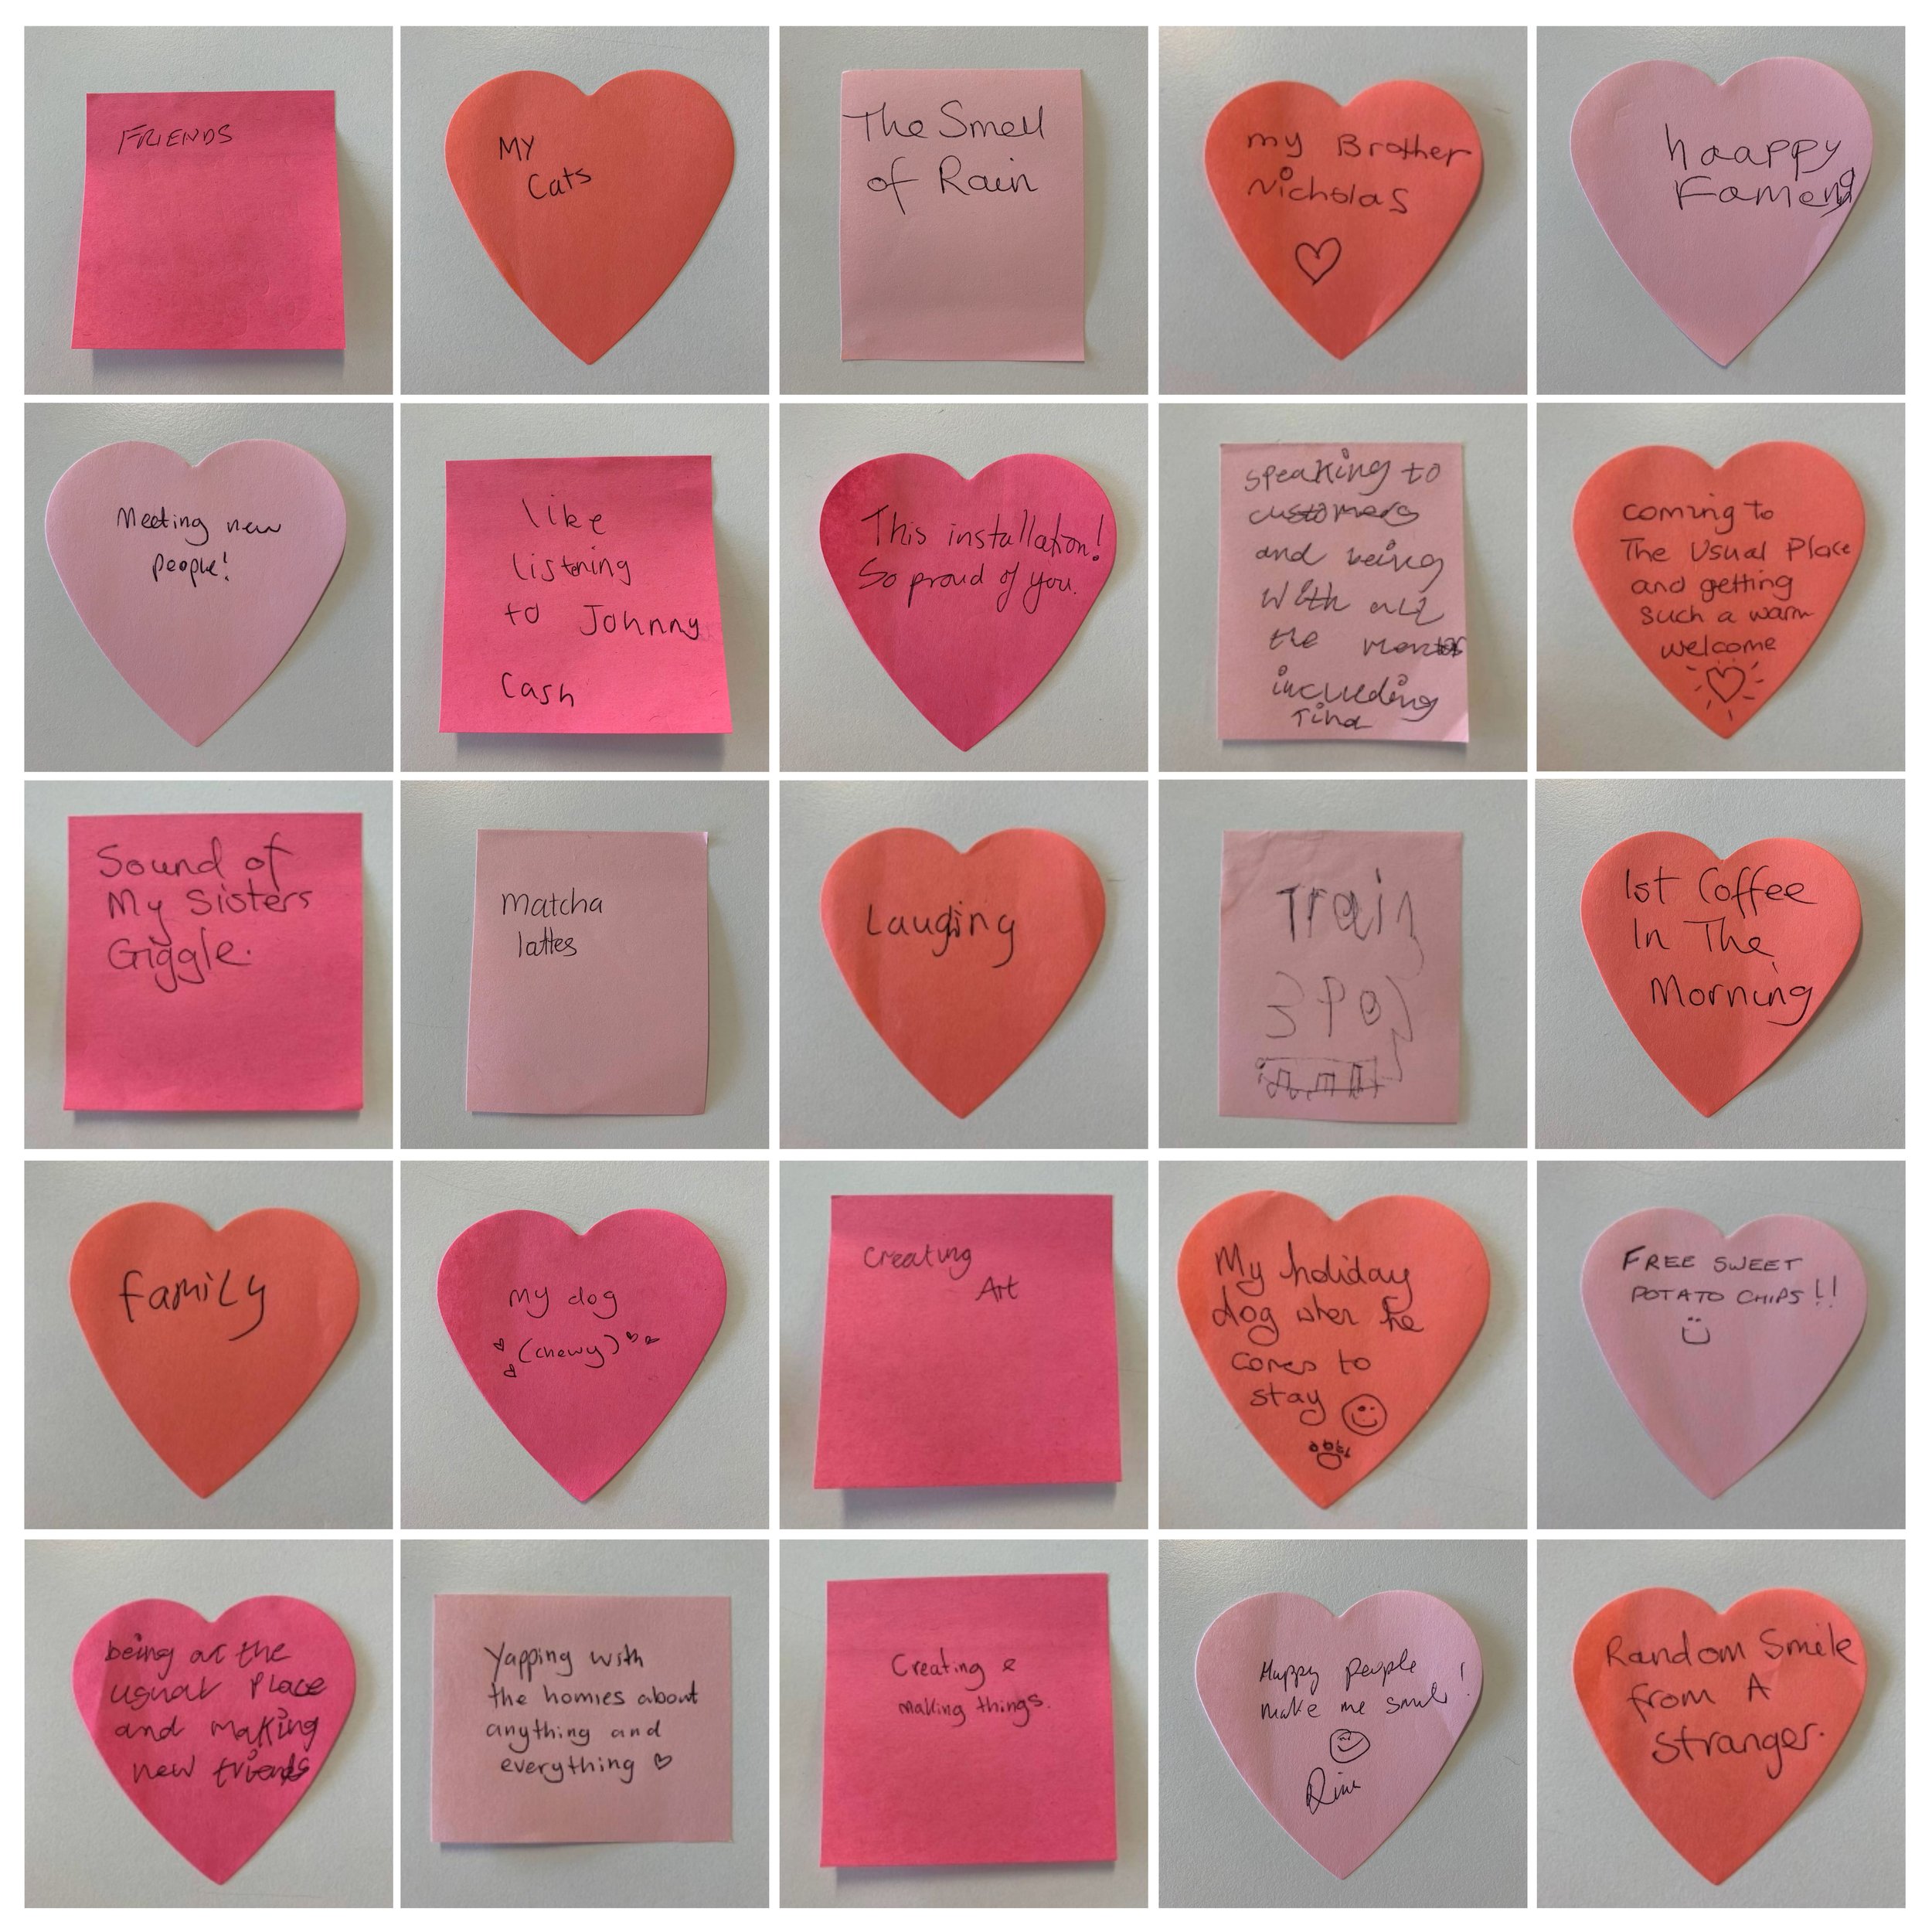 FRIENDS
MY
Cats
The Smell
of Rain
my Brother
Nicholas
haappy
Meeting new
people!
like
listning
to Johnny
Cash
This installation!
So proud of you.
speaking to
customers
and being
With all
the
including
Tina
coming to
The Usual Place
and getting
such a warm
welcome
Sound of
My Sisters
Giggle.
Matcha
lattes
Laughing
Train
1st Coffee
In The
Morning
family
my dog
(chewy)
Creating
Art
My holiday
dog when he
comes to
stay
FREE SWEET
POTATO CHIPS!!
being at the
usual Place
and making
new friends
Yapping with
the homies about
anything and
everything
Creating &
making things.
Happy people
make me smile!
Random Smile
from A
stranger.